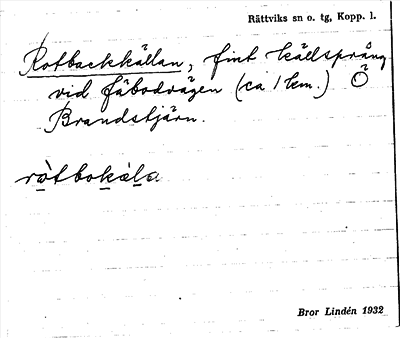 Rättviks sn o. tg, Kopp. l.
Rotbackkällan, fint källsprång
vid fäbodvägen (ca 1 km.) Ö
Brandstjärn.
ròtbokäla
Bror Lindén 1932